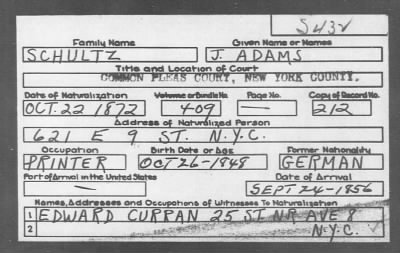 S432
Family Name Given Name or Names
SCHULTZ J. ADAMS
Title and Location of Court
COMMON PLEAS COURT, NEW YORK COUNTY.
Date of Naturalization Volume or Bundle No. Page No. Copy of Record No.
OCT. 22 1872 409 — 212
Address of Naturalized Person
621 E 9 ST. N.Y.C.
Occupation Birth Date or Age Former Nationality
PRINTER OCT 26-1848 GERMAN
Port of Arrival in the United States Date of Arrival
— SEPT 24-1856
Names, Addresses and Occupations of Witnesses To Naturalization
1 EDWARD CURRAN 25 ST NR AVE 8
2 N.Y.C.